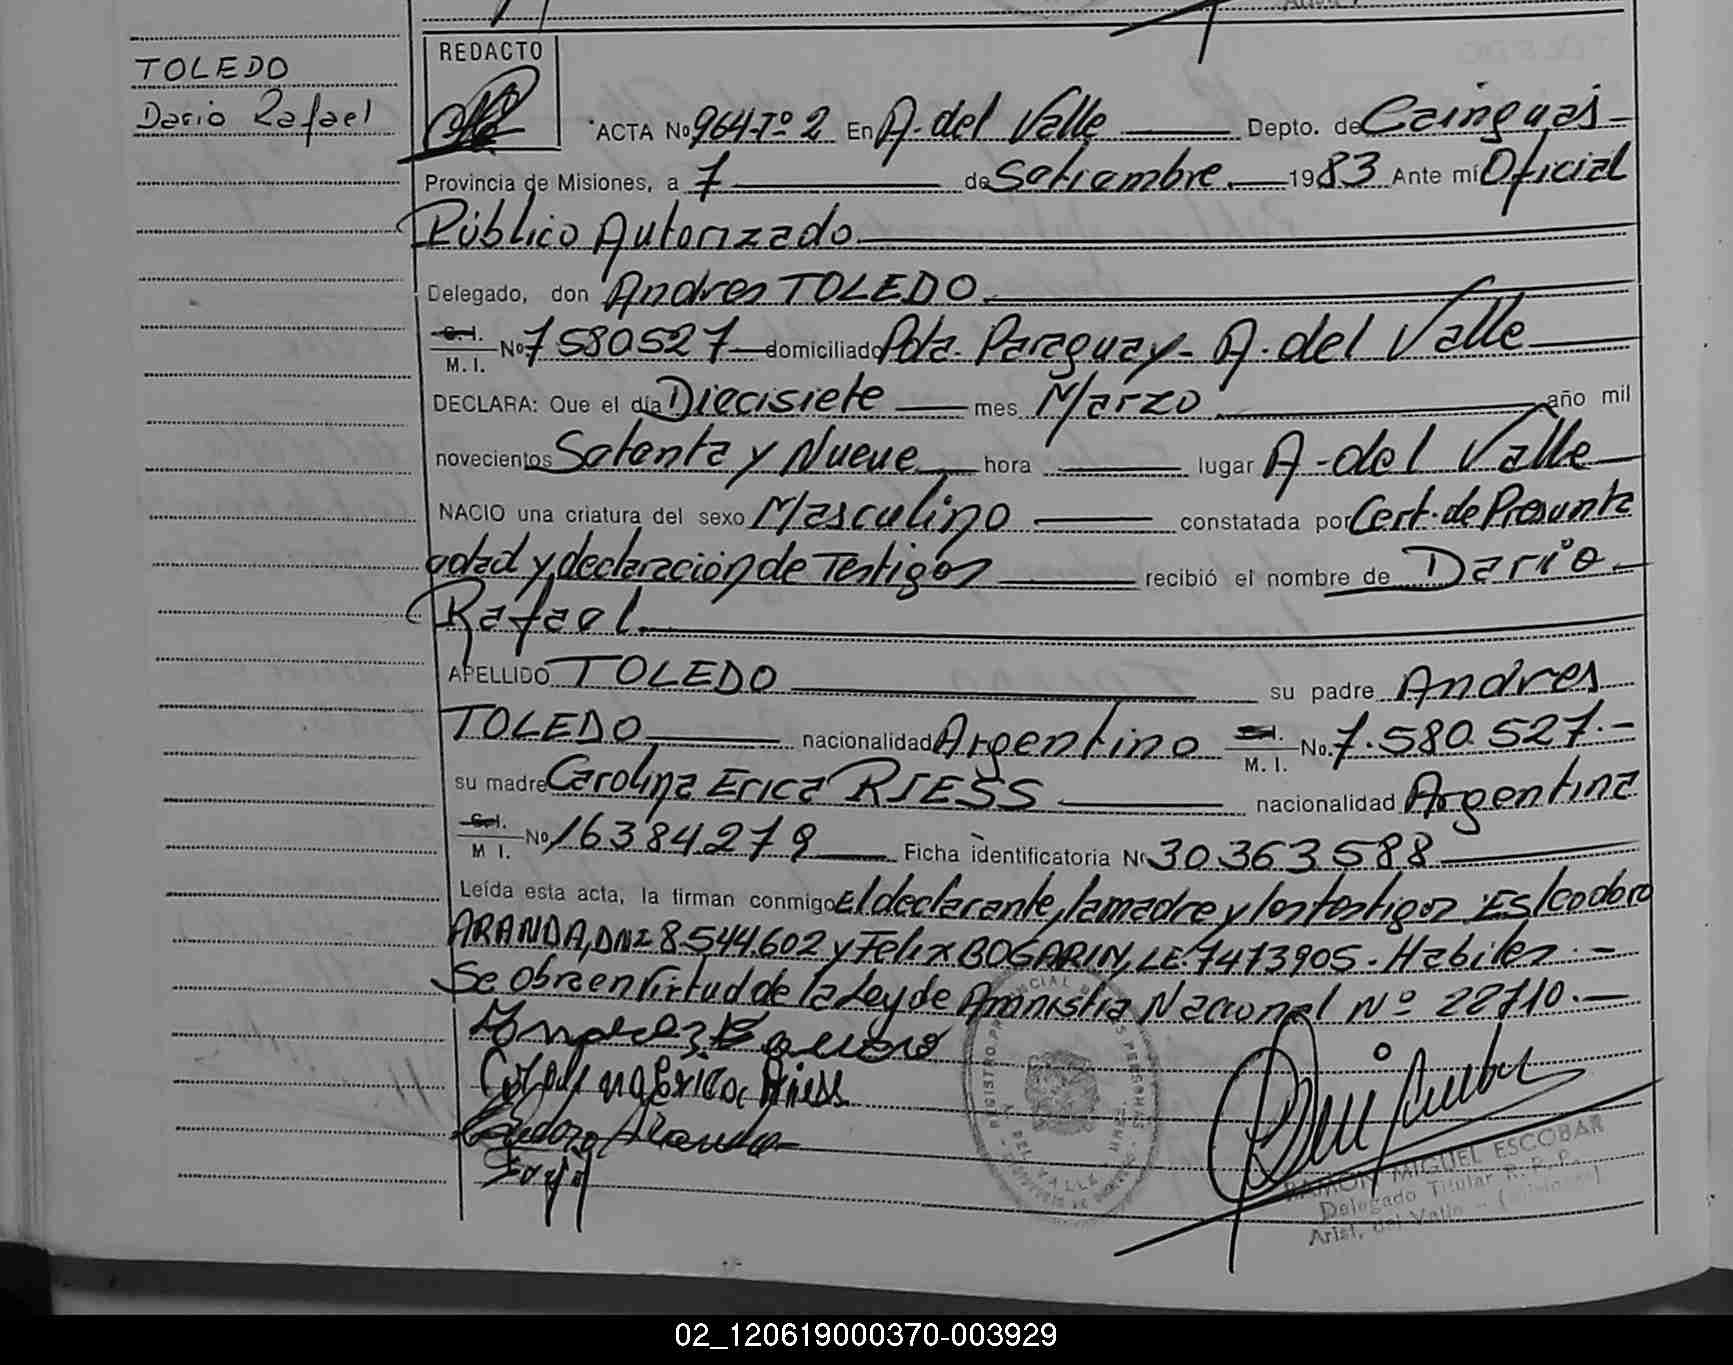 TOLEDO
Dario Rafael
REDACTO
ACTA No 964-Tº 2 En A. del Valle Depto. de Cainguás
Provincia de Misiones, a 7 de Setiembre 1983 Ante mí Oficial
Público Autorizado
Delegado, don Andres TOLEDO
C.I. M. I. No 7580527 domiciliado Pda. Paraguay - A. del Valle
DECLARA: Que el día Diecisiete mes Marzo año mil
novecientos Setenta y Nueve hora lugar A. del Valle
NACIO una criatura del sexo Masculino constatada por Cert. de Presunta
edad y declaración de Testigos recibió el nombre de Dario
Rafael
APELLIDO TOLEDO su padre Andres
TOLEDO nacionalidad Argentino C.I. M. I. No. 7.580.527.-
su madre Carolina Erica RIESS nacionalidad Argentina
C.I. M I. No 16384279 Ficha identificatoria No 30363588
Leída esta acta, la firman conmigo El declarante, la madre y los testigos
ARANDA, DNI 8.544.602 y Felix BOGARIN, LE. 7473905. Habiles.-
Se obra en Virtud de la Ley de Amnistia Nacional Nº 22710.-
Carolina Erica Riess
Aranda
REGISTRO PROVINCIAL DE LAS PERSONAS
DEL VALLE
RAMON MIGUEL ESCOBAR
Delegado Titular R. P. P.
Arist. del Valle - (Misiones)
02_120619000370-003929